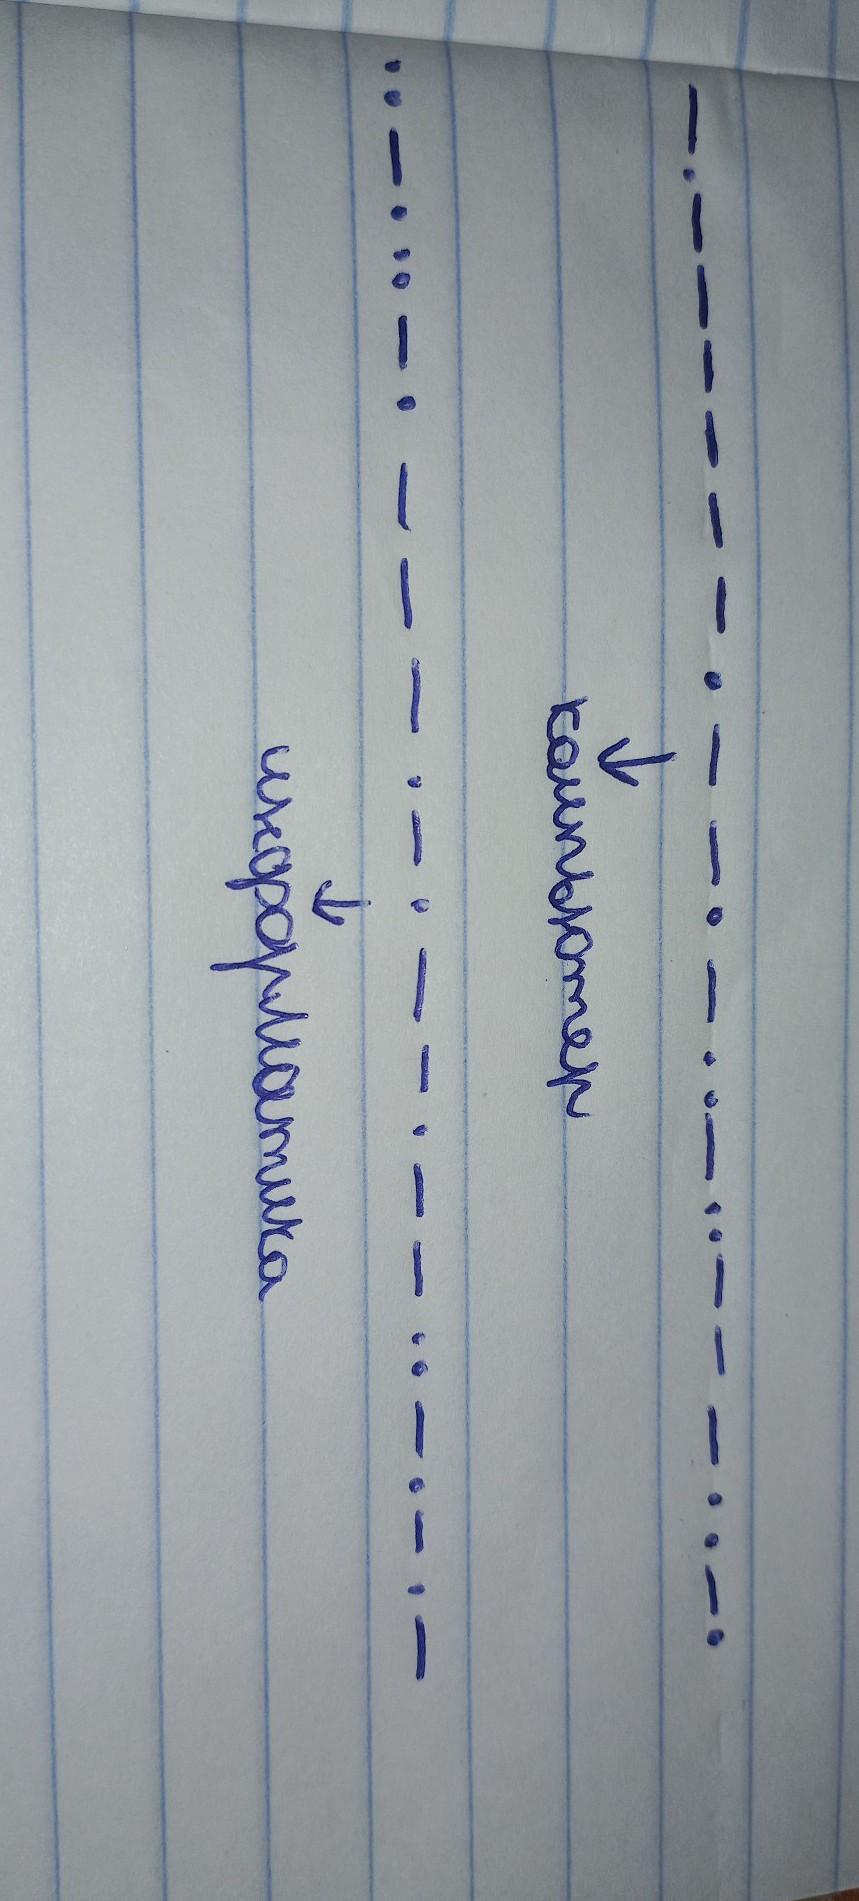 — . — — — — — — . — — . — . . — . . — — — . . — .
↓
компьютер
. . — . . . — . — — — . — . — — . — — . . — . — . —
↓
информатика